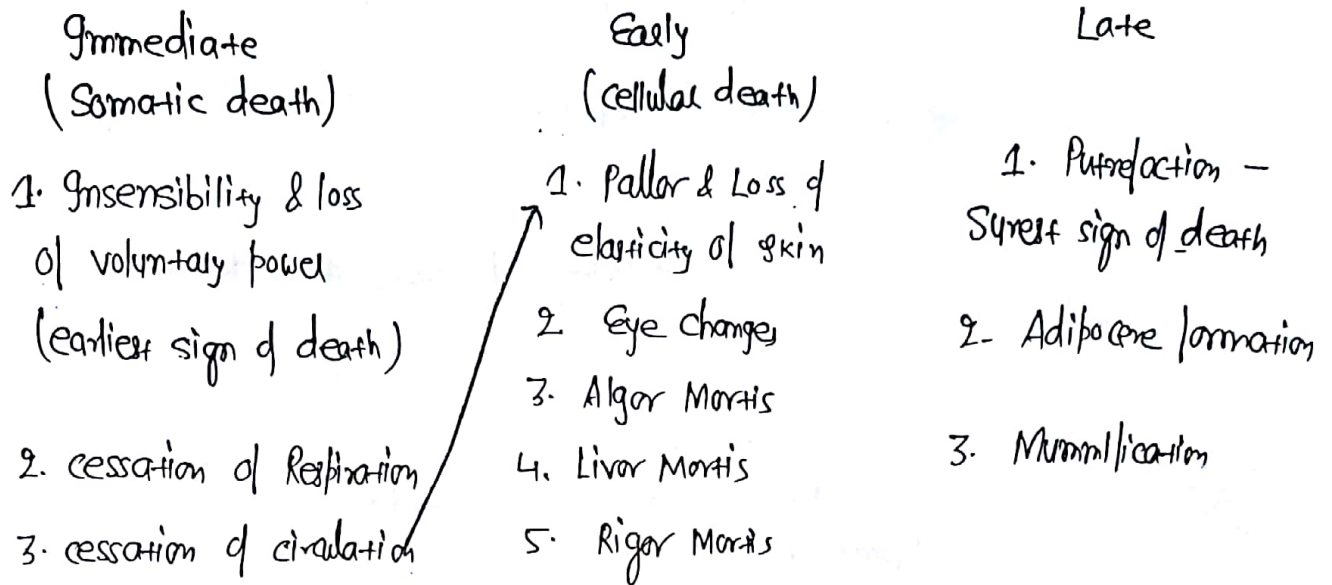 Immediate
(Somatic death)
1. Insensibility & loss
of voluntary power
(earliest sign of death)
2. cessation of Respiration
3. cessation of circulation
Early
(cellular death)
1. Pallor & Loss of
elasticity of skin
2 Eye changes
3. Algor Mortis
4. Livor Mortis
5. Rigor Mortis
Late
1. Putrefaction -
Surest sign of death
2- Adipocere formation
3. Mummification